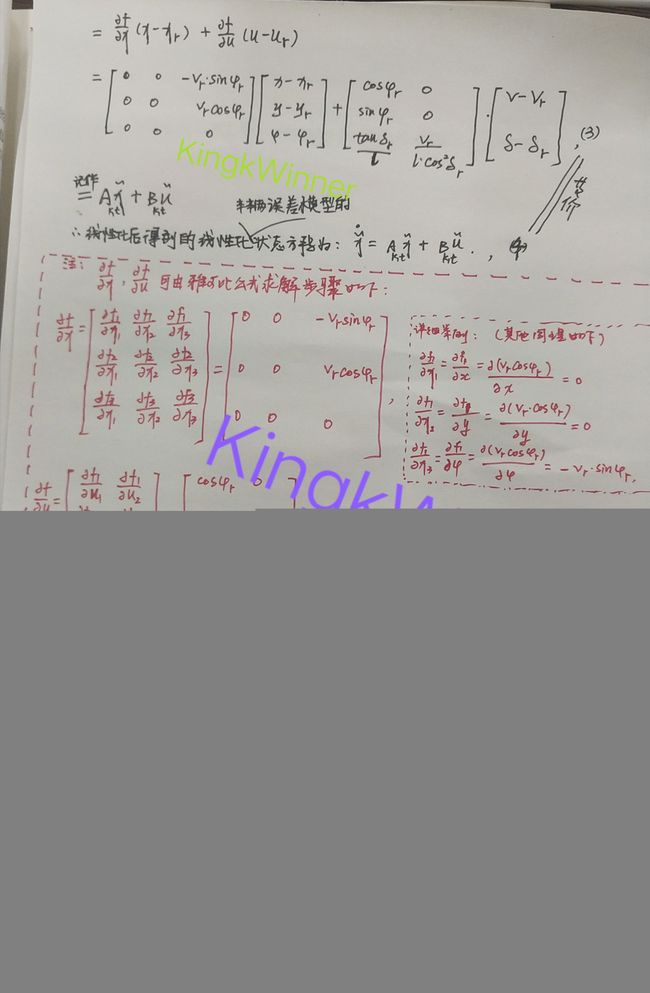 = ∂f/∂η (η-ηr) + ∂f/∂u (u-ur)
= [0 0 -vr·sinφr; 0 0 vrcosφr; 0 0 0] [x-xr; y-yr; φ-φr] + [cosφr 0; sinφr 0; tanδr/l vr/(l·cos²δr)] · [v-vr; δ-δr], (3)
KingkWinner
等价
记作
= A η̃ + B ũ
kt kt
车辆误差模型的
∴ 线性化后得到的线性化状态方程为: η̃̇ = A η̃ + B ũ. ,
kt kt
注: ∂f/∂η, ∂f/∂u 可由雅可比公式求解步骤如下:
∂f/∂η = [∂f1/∂η1 ∂f1/∂η2 ∂f1/∂η3; ∂f2/∂η1 ∂f2/∂η2 ∂f2/∂η3; ∂f3/∂η1 ∂f3/∂η2 ∂f3/∂η3] = [0 0 -vrsinφr; 0 0 vrcosφr; 0 0 0],
详细举例: (其他同理如下)
∂f1/∂η1 = ∂f1/∂x = ∂(vrcosφr)/∂x = 0
∂f1/∂η2 = ∂f1/∂y = ∂(vr·cosφr)/∂y = 0
∂f1/∂η3 = ∂f1/∂φ = ∂(vrcosφr)/∂φ = -vr·sinφr,
KingkW
∂f/∂u = [∂f1/∂u1 ∂f1/∂u2] [cosφr 0]